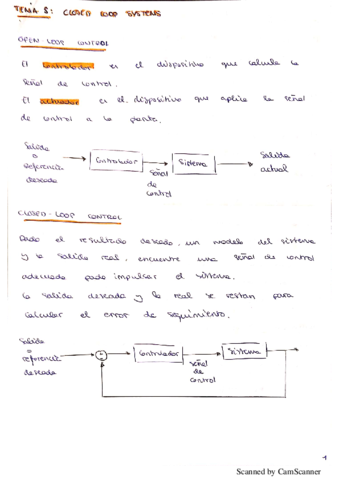 TEMA 5: CLOSED LOOP SYSTEMS
OPEN-LOOP CONTROL
El controlador es el dispositivo que calcula la
señal de control.
El actuador es el dispositivo que aplica la señal
de control a la planta.
Salida
o
referencia
deseada
Controlador
señal
de
control
Sistema
Salida
actual
CLOSED-LOOP CONTROL
Dado el resultado deseado, un modelo del sistema
y la salida real, encuentre una señal de control
adecuada para impulsar el sistema.
La salida deseada y la real se restan para
calcular el error de seguimiento.
Salida
o
referencia
deseada
Controlador
señal
de
control
Sistema
1
Scanned by CamScanner